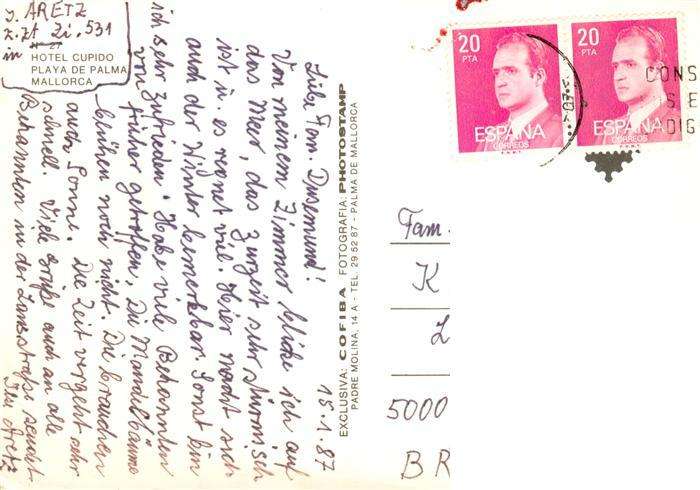 J. ARETZ
z. Zt Zi. 531
in
HOTEL CUPIDO
PLAYA DE PALMA
MALLORCA
15.1.87
Liebe Fam. Dusemund!
Von meinem Zimmer blicke ich auf
das Meer, das zurzeit sehr stürmisch
ist u. es regnet viel. Hier macht sich
auch der Winter bemerkbar. Sonst bin
ich sehr zufrieden. Habe viele Bekannten
von früher getroffen. Die Mandelbäume
blühen noch nicht. Die brauchen
auch Sonne. Die Zeit vergeht sehr
schnell. Viele Grüße auch an alle
Bekannten in der Lanzstraße sendet
Ihr Aretz
EXCLUSIVA: COFIBA FOTOGRAFIA: PHOTOSTAMP
PADRE MOLINA, 14 A - TEL. 29 52 87 - PALMA DE MALLORCA
20
PTA
ESPAÑA
CORREOS
20
PTA
ESPAÑA
CORREOS
CONS
S E
DIG
Fam.
K
L
5000
BR